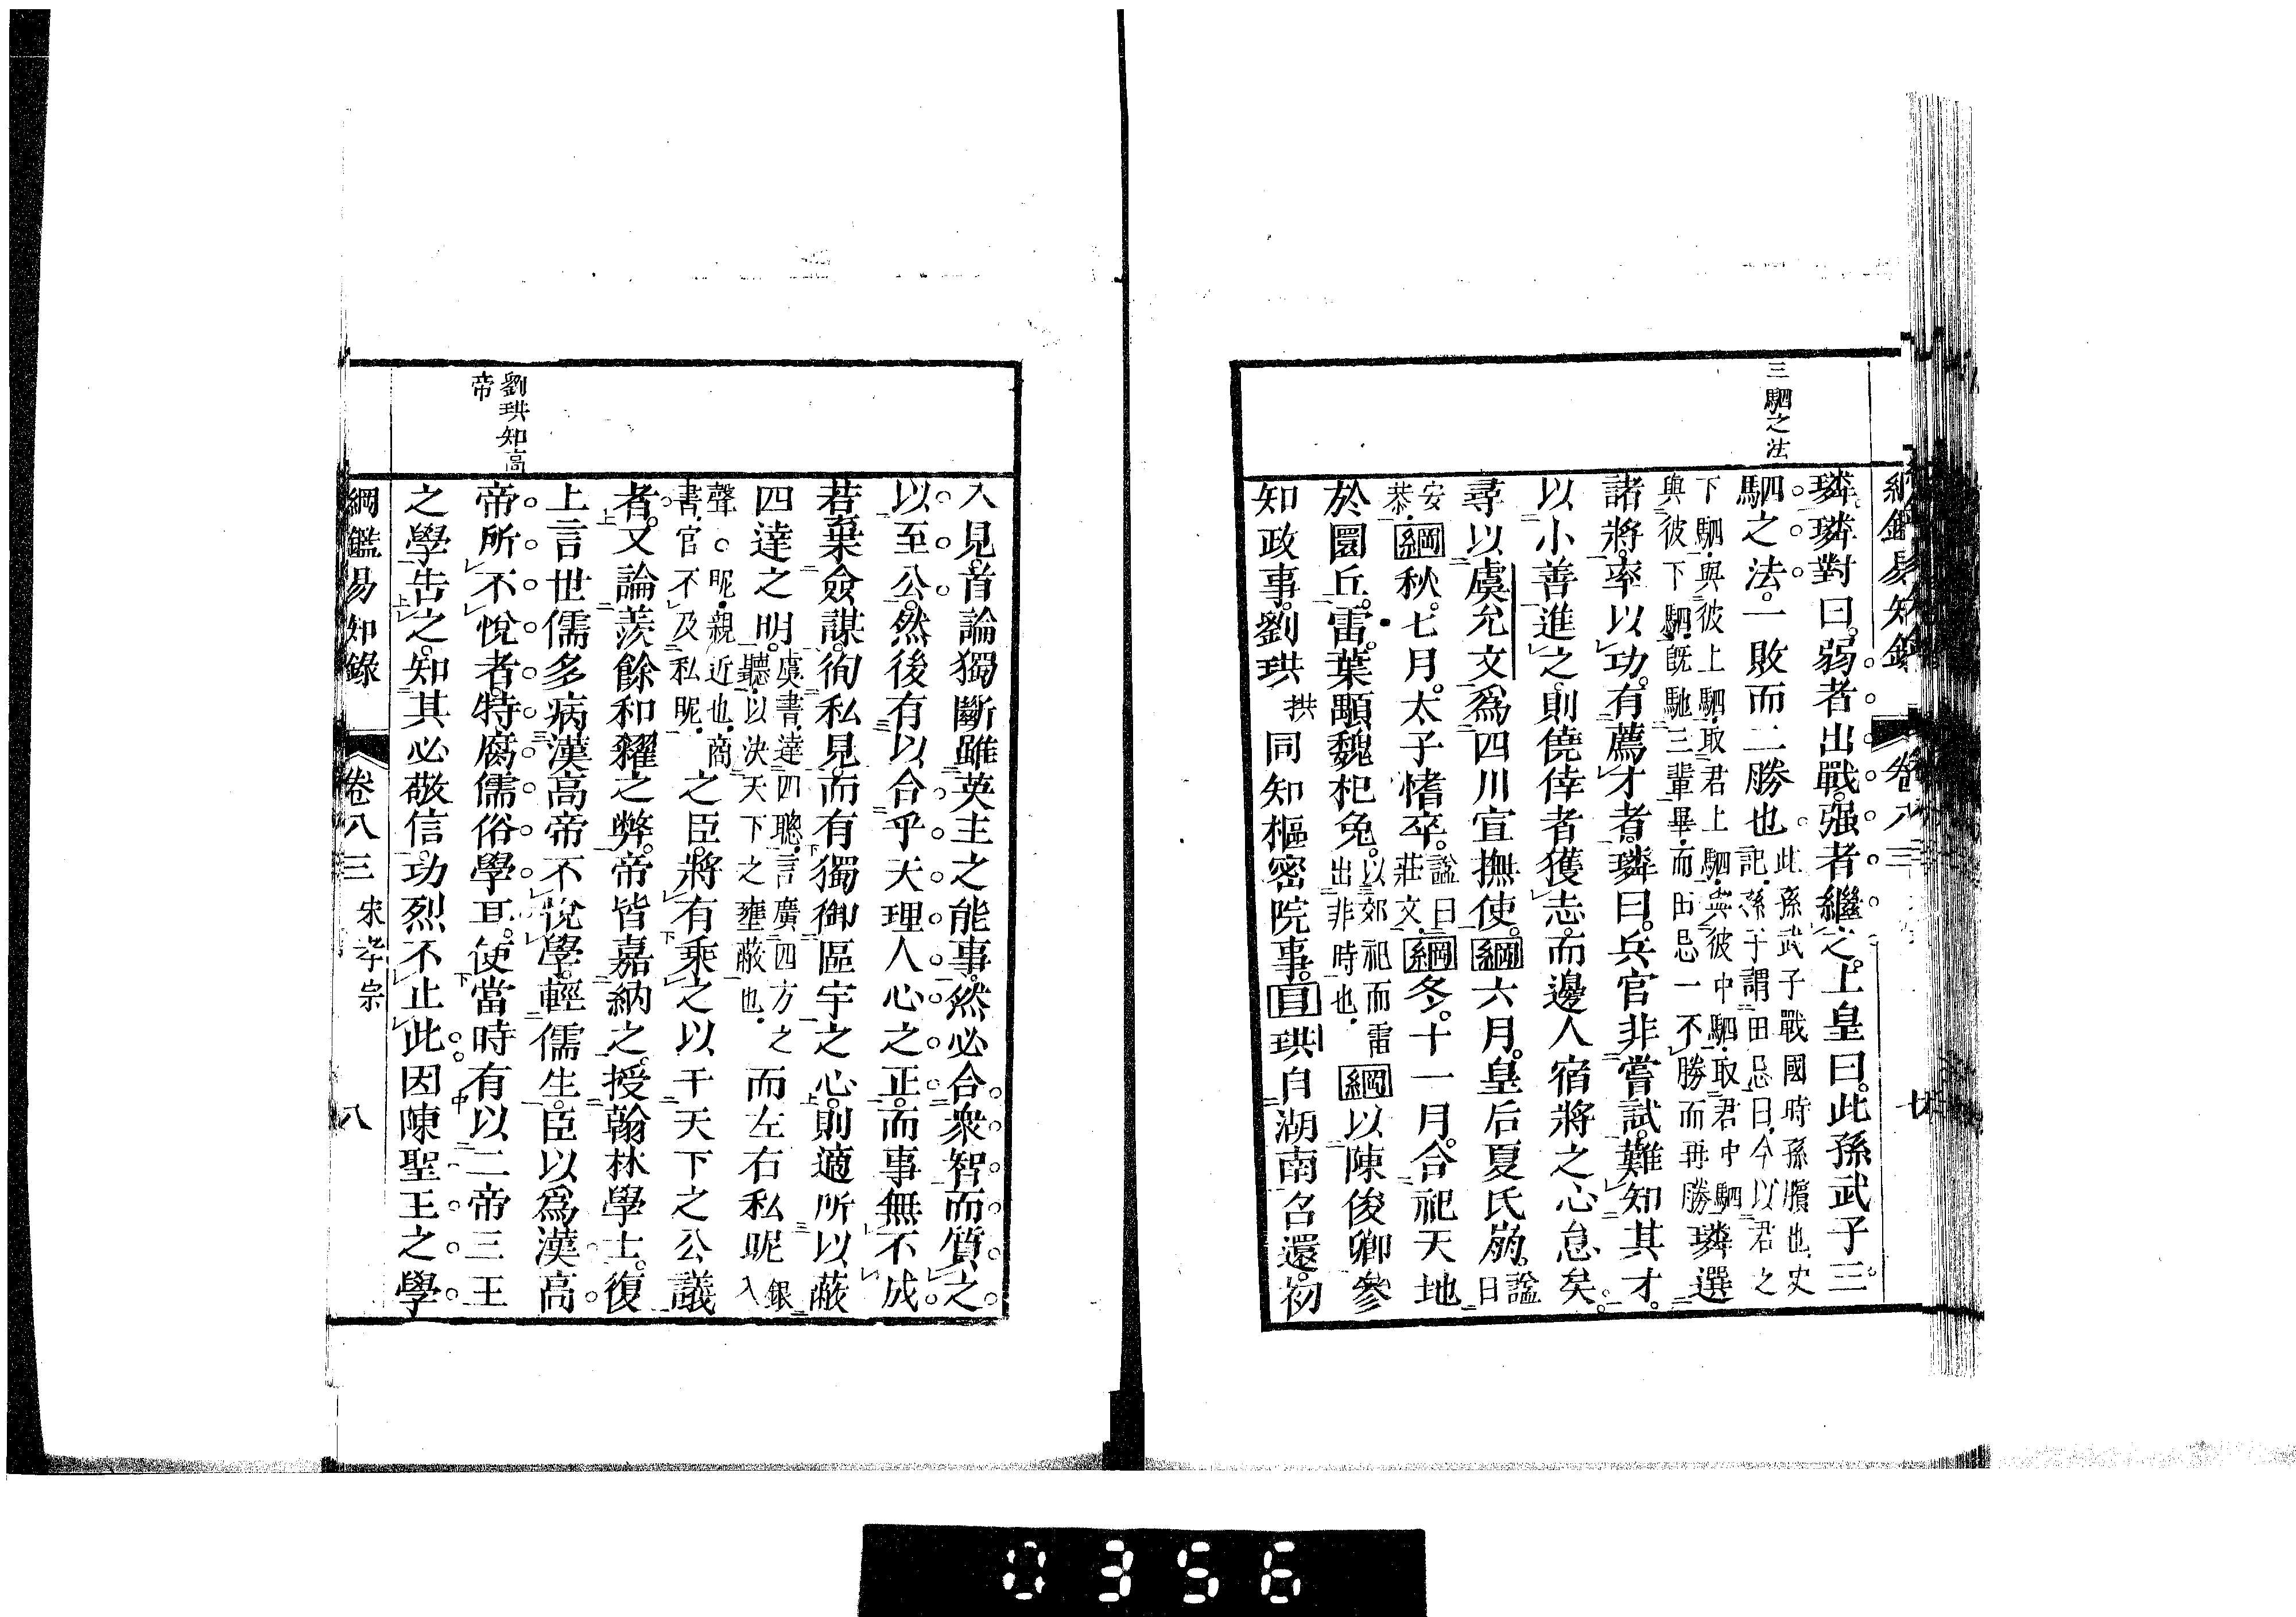 三駟之法
璘。璘對曰。弱者出戰。强者繼之。上皇曰。此孫武子三
駟之法。一敗而二勝也。
此孫武子戰國時孫臏也、史
記、孫子謂田忌曰、今以君之
下駟、與彼上駟、取君上駟、與彼中駟、取君中駟
與彼下駟、旣馳三輩畢、而田忌一不勝而再勝
璘選
諸將。率以功。有薦才者。璘曰。兵官非嘗試。難知其才。
以小善進之。則僥倖者獲志。而邊人宿將之心怠矣。
尋以虞允文爲四川宣撫使。綱六月。皇后夏氏崩。
諡
曰
安
恭、
綱秋。七月。太子愭卒。
諡曰
莊文、
綱冬。十一月。合祀天地
於圜丘。雷。葉顒魏杞免。
以郊祀而雷
出非時也、
綱以陳俊卿參
知政事。劉珙
拱
同知樞密院事。目珙自湖南召還。初
入見。首論獨斷雖英主之能事。然必合衆智而質之
以至公。然後有以合乎天理人心之正。而事無不成
若棄僉謀。徇私見。而有獨御區宇之心。則適所以蔽
四達之明。
虞書、達四聰、言廣四方之
聽、以決天下之壅蔽也、
而左右私昵
銀
入
聲○昵、親近也、商
書、官不及私昵、
之臣。將有乘之以干天下之公議
者。又論羨餘和糴之弊。帝皆嘉納之。授翰林學士。復
上言世儒多病漢高帝不悅學。輕儒生。臣以爲漢高
帝所不悅者。特腐儒俗學耳。使當時有以二帝三王
之學告之。知其必敬信。功烈不止此。因陳聖王之學
劉珙知高
帝
綱鑑易知錄
卷八三 宋孝宗
八